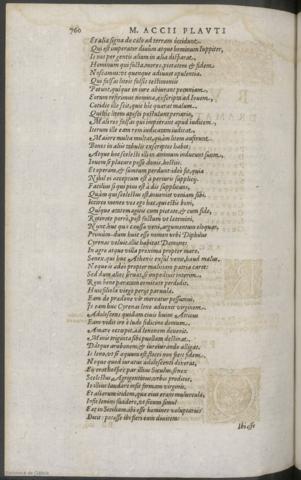 760 M. ACCII PLAVTI
Et alia signa de cælo ad terram accidunt.
Qui est imperator diuûm atque hominum Iuppiter,
Is nos per gentis alium in alia disparat,
Hominum qui facta, mores, pietatem & fidem
Noscamus: ut quenque adiuuet opulentia.
Qui falsas lites falsis testimoniis
Petunt, qui que in iure abiurant pecuniam,
Eorum referimus nomina, exscripta ad Iouem.
Cotidie ille scit, quis hic quærat malum.
Qui hic litem apisci postulant periurio,
Mali res falsas qui impetrant apud iudicem.
Iterum ille eam rem iudicatam iudicat.
Maiore multa multat, quàm litem auferunt.
Bonos in aliis tabulis exscriptos habet.
Atque hoc scelesti illi in animum inducunt suum,
Iouem se placare posse donis, hostiis:
Et operam, & sumtum perdunt: ideò fit, quia
Nihil ei acceptum est à periuris supplicij.
Facilius si qui pius est à diis supplicans,
Quàm qui scelestus est, inueniet veniam sibi.
Idcirco moneo vos ego hæc, qui estis boni,
Quique ætatem agitis cum pietate, & cum fide,
Retinete porrò, post factum ut lætemini,
Nunc huc qua causa veni, argumentum eloquar.
Primùm dum huic esse nomen urbi Diphilus
Cyrenas voluit. illic habitat Dæmones
In agro atque villa proxima propter mare.
Senex, qui huc Athenis exsul venit, haud malus.
Neque is adeò propter malitiam patria caret:
Sed dum alios seruat, se impediuit interim.
Rem bene paratam comitate perdidit.
Huic filiola virgo periit paruula.
Eam de prædone vir mercatur pessimus,
Is eam huc Cyrenas leno aduexit virginem.
Adolescens quidam ciuis huius Atticus
Eam vidit ire è ludo fidicino domum,
Amare occœpit, ad lenonem deuenit.
Minis triginta sibi puellam destinat.
Datque arrabonem, & iureiurando alligat.
Is leno, ut se æquum est, flocci non fecit fidem,
Neque quod iuratus adolescenti dixerat,
Ei erat hospes par illius Siculus, senex
Scelestus Agrigentinus, urbis proditor,
Is illius laudare infit formam virginis,
Et aliarum itidem, quæ eius erant mulierculæ,
Infit lenoni suadere, ut secum simul
Eat in Siciliam, ibi esse homines voluptarios
Dicit: potesse ibi fieri eum diuitem:
Ibi esse